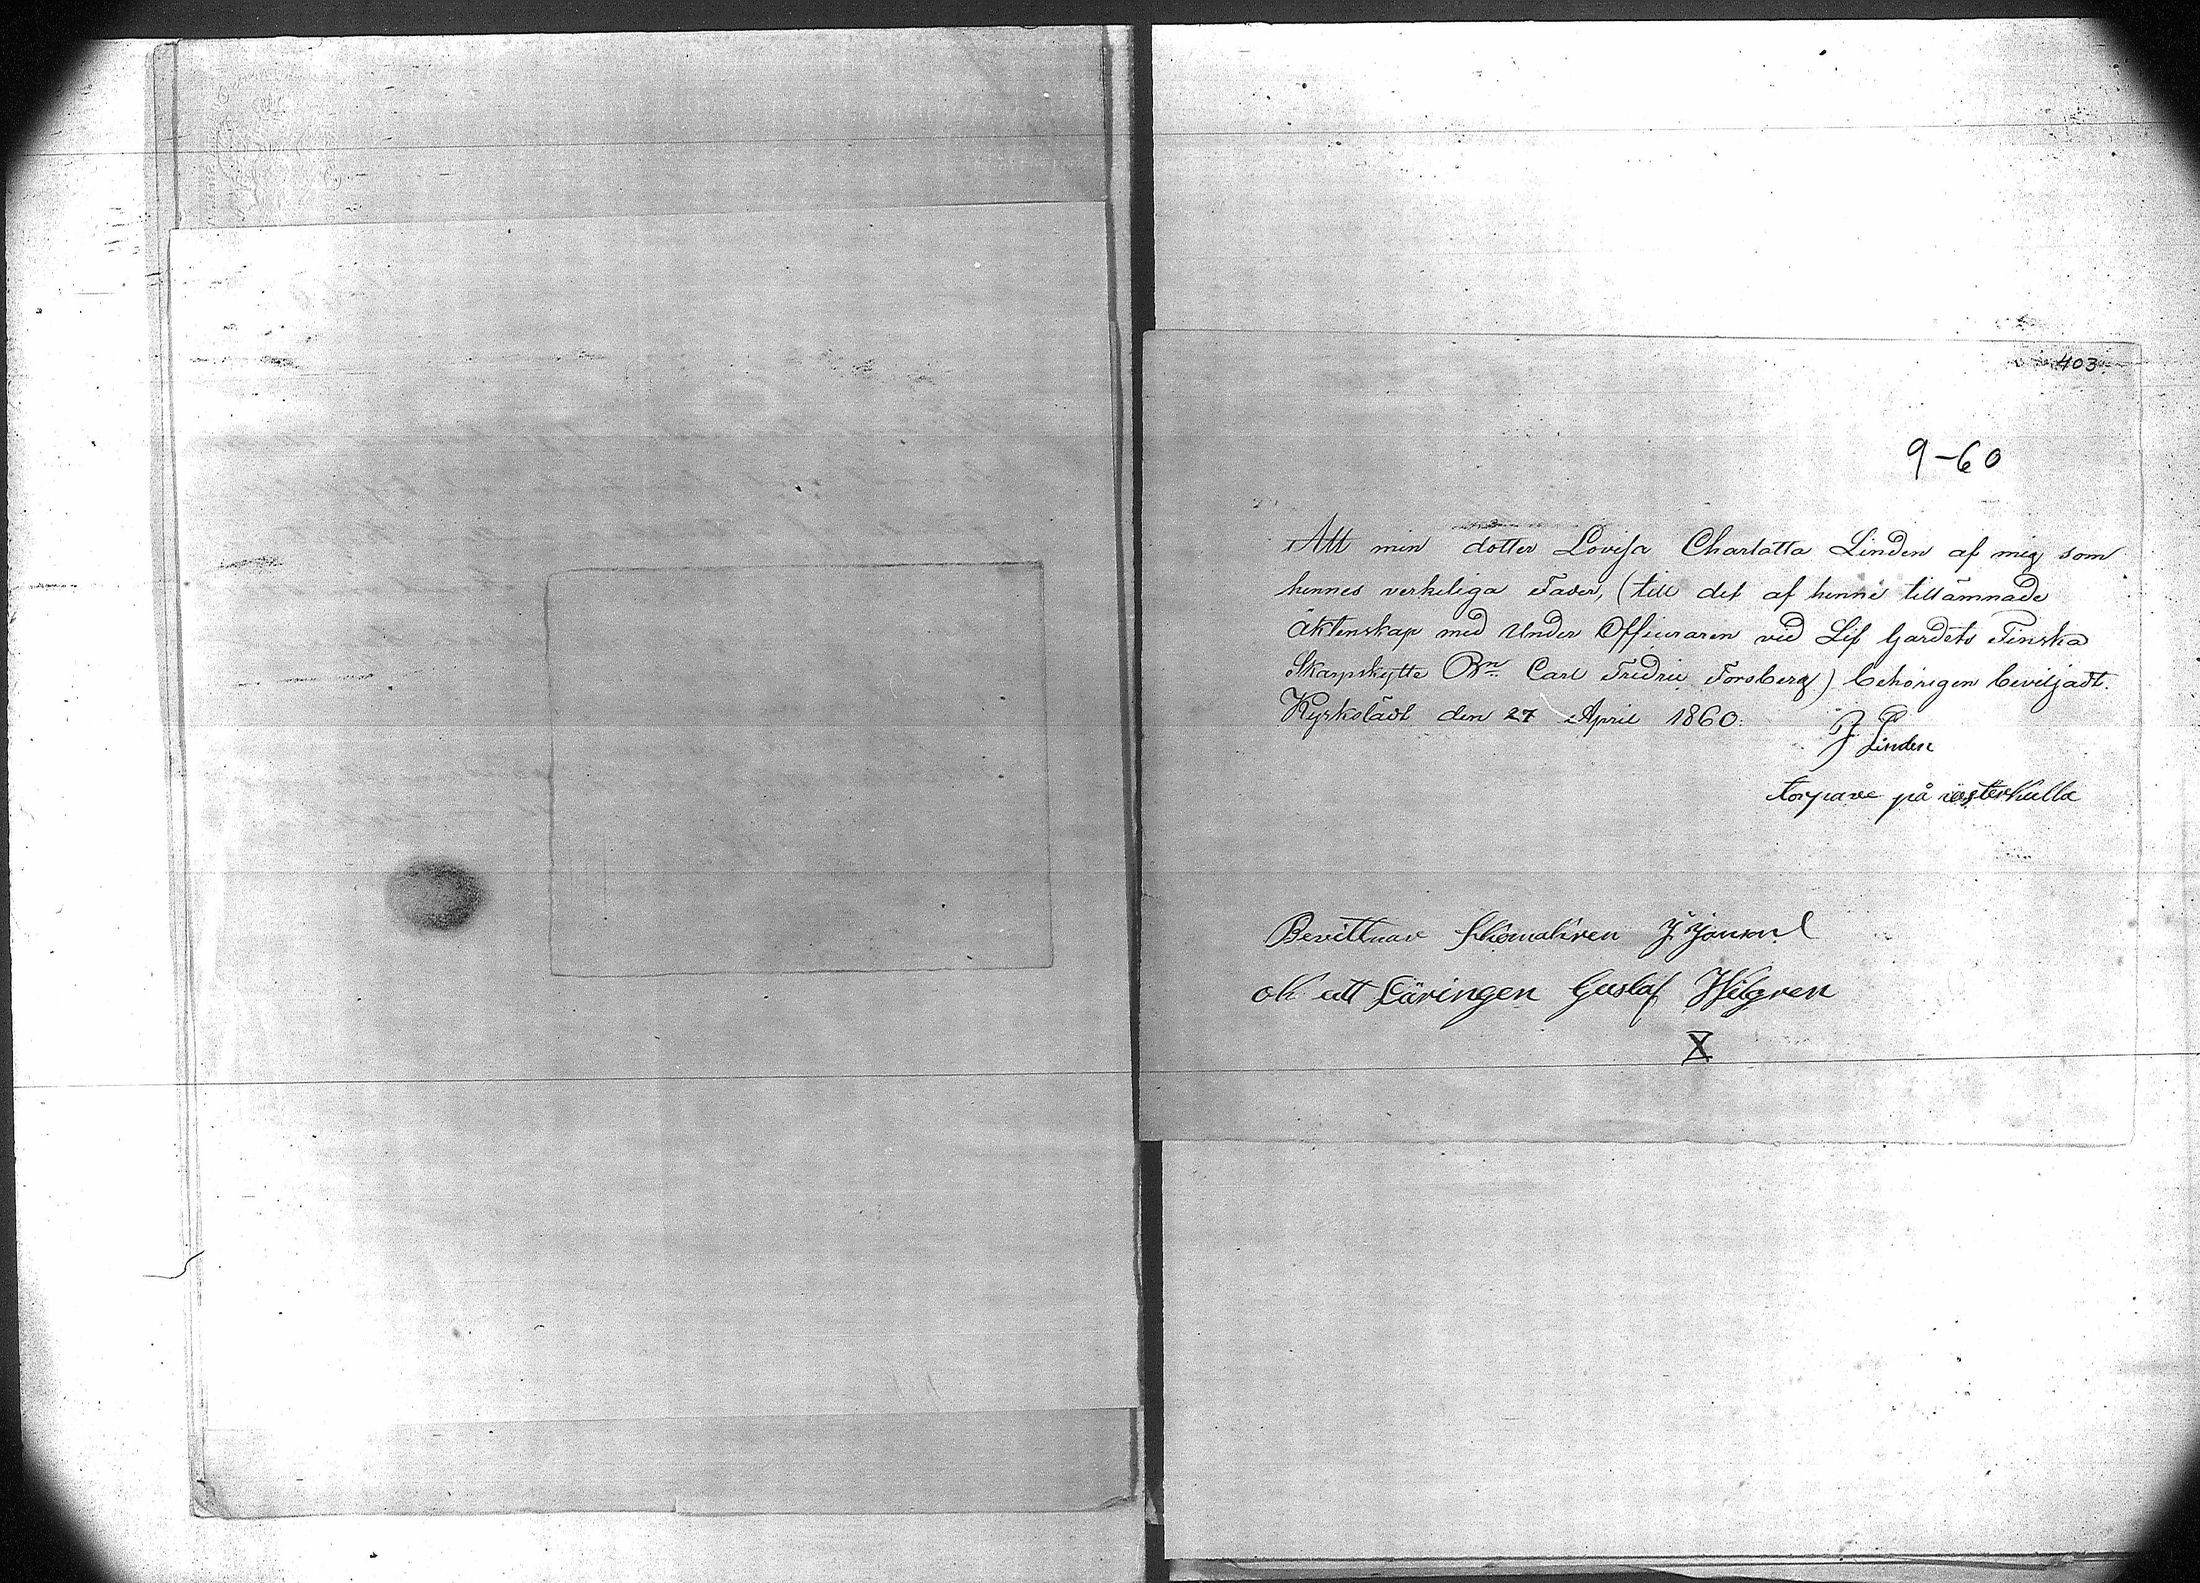 403.
9-60
Att min dotter Lovisa Charlatta Linden af mig som
hennes verkeliga Fader, (till det af henne tillämnade
äktenskap med Under Officuraren vid Lif Gardets Finska
Skarpskytte Bn. Carl Fridric Forsberg) behörigen beviljadt.
Kyrkslädt den 27 April 1860.
J Linden
torpare på västerkulla
Bevittnar J Janson
ok utt Läringen Gustaf Wilgren
X